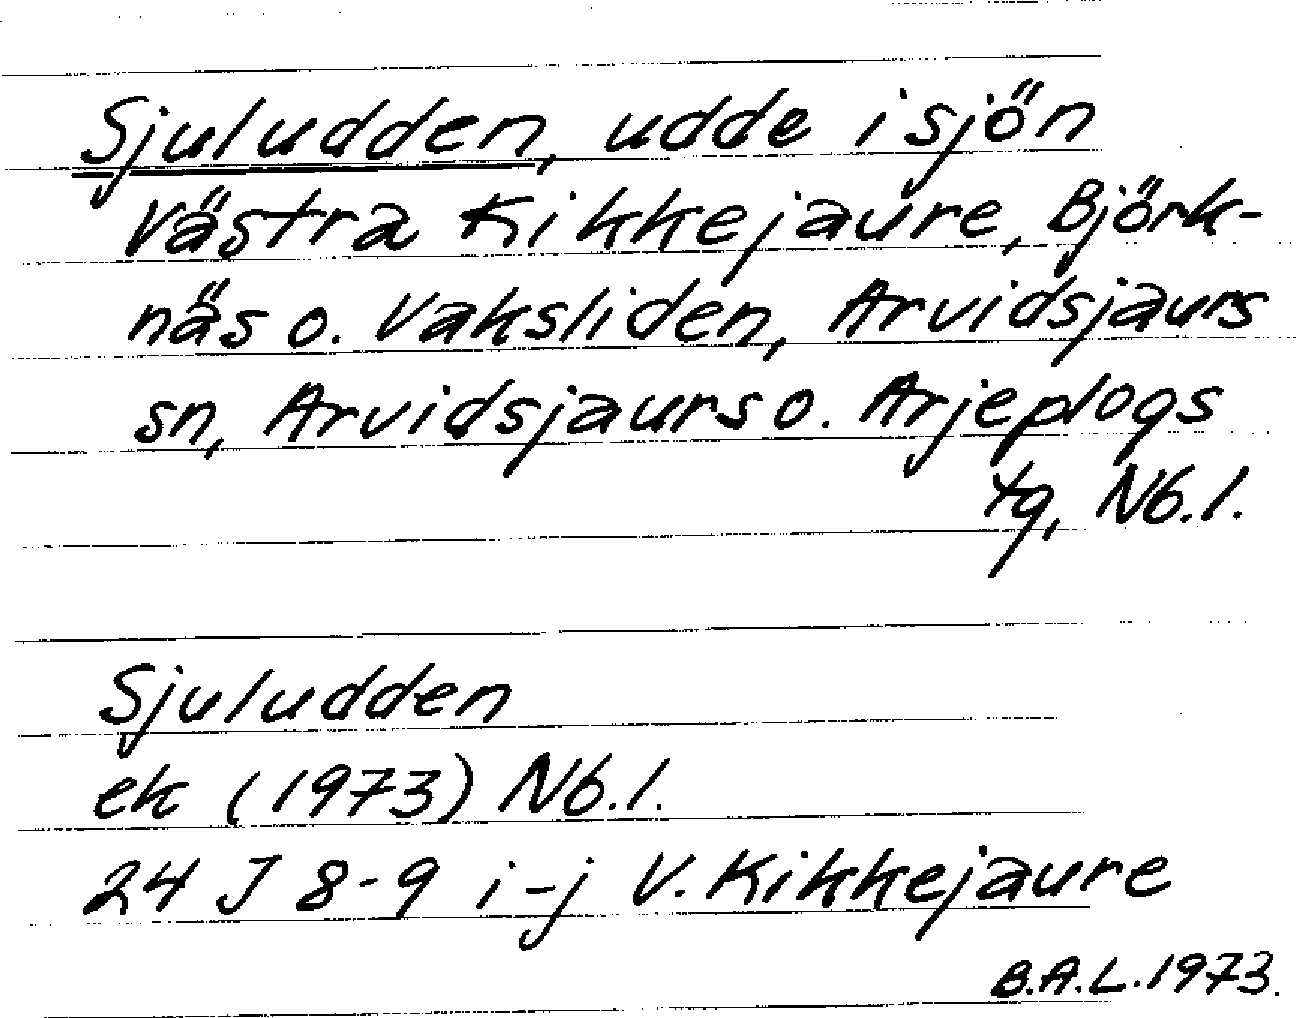 Sjuludden, udde i sjön
Västra Kikkejaure, Björk-
näs o. Vaksliden, Arvidsjaurs
sn, Arvidsjaurs o. Arjeplogs
tg, Nb.l.
Sjuludden
ek (1973) Nb.l.
24 J 8-9 i-j V. Kikkejaure
B.A.L. 1973.